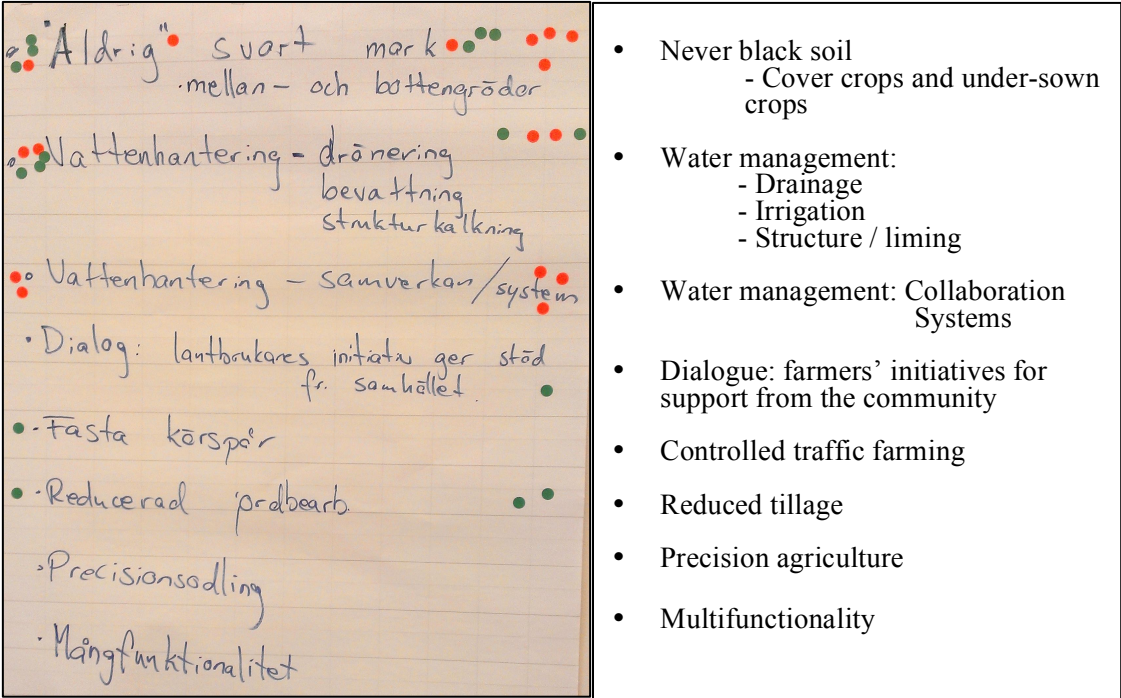 • "Aldrig" svart mark
• mellan- och bottengrödor
• Vattenhantering - dränering
bevattning
strukturkalkning
• Vattenhantering - samverkan/system
• Dialog: lantbrukares initiativ ger stöd
fr. samhället.
• Fasta körspår
• Reducerad jordbearb.
• Precisionsodling
• Mångfunktionalitet
• Never black soil
- Cover crops and under-sown
crops
• Water management:
- Drainage
- Irrigation
- Structure / liming
• Water management: Collaboration
Systems
• Dialogue: farmers’ initiatives for
support from the community
• Controlled traffic farming
• Reduced tillage
• Precision agriculture
• Multifunctionality